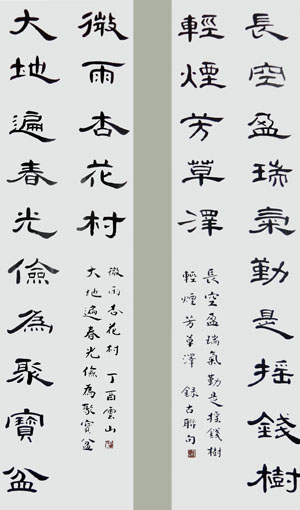 長空盈瑞氣勤是搖錢樹
輕煙芳草澤
長空盈瑞氣勤是搖錢樹
輕煙芳草澤 錄古聯句
大地遍春光儉為聚寶盆
微雨杏花村
大地遍春光儉為聚寶盆
微雨杏花村 丁酉雲山